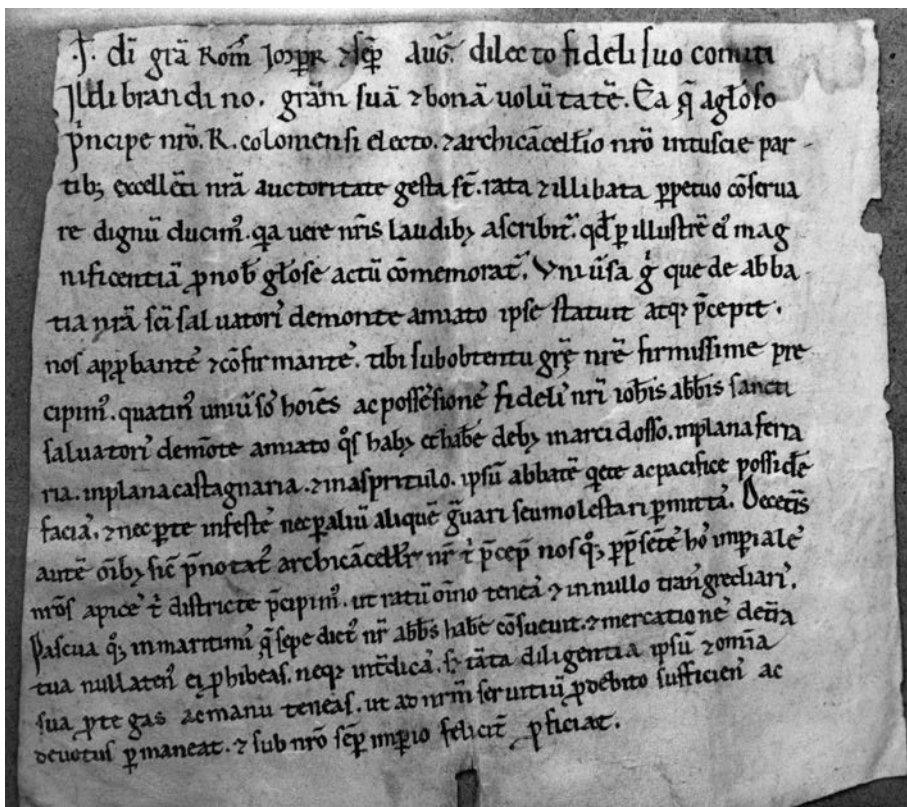 ·F· dī grā Rom̄ Imꝑr ⁊ sēꝑ Aug̃. dilecto fideli suo comiti
Jldibrandino. grām̄ suā ⁊ bonā uolūtatē. Ea q̄ a gl̄oso
p̄ncipe nr̄o. R. coloniensi electo. ⁊ archicācell̄io nr̄o in tuscie par
tibꝫ excellēti nr̄a auctoritate gesta st̄. rata ⁊ illibata ꝑpetuo cōserua
re dignū ducim᾿. qa uere nr̄is laudibꝫ ascribit᷑. qd̄ ꝑ illustrē ei᾿ mag
nificentiā ꝓ nob̄ gl̄ose actū cōmemorat᷑. Vniũsa g̊ que de abba
tia nr̄a sc̄i saluatori᾿ de monte amiato ipse statuit atqꝫ p̄cepit.
nos apꝓbante᾿ ⁊ cōfirmante᾿. tibi sub obtentu gr̄ę nr̄ę firmissime pre
cipim᾿. quatin᾿ uniũso᾿ hoīes ac possessione᾿ fideli᾿ nr̄i ioh̄is abb̄is sancti
saluatori᾿ de mōte amiato qͦs habꝫ et habe᾿ debꝫ in arcidosso. in plana ferra
ria. in plana castagnaria. ⁊ in aspritulo. ipsū abbatē qete ac pacifice possidē
facia᾿. ⁊ nec ꝑ te infeste᾿ nec ꝑ aliū aliquē g̃uari seu molestari ꝑmitta᾿. Decet᷑is
autē oīb᾿ sic̄ p̄notat᾿ archicācell̄r nr̄ t᾿ p̄cep̄ nos qͦꝫ ꝑ p̄sēte᾿ ho᾿ imꝑiale᾿
nr̄os apice᾿ t᾿ districte p̄cipim᾿. ut ratū oīno tenea᾿ ⁊ in nullo transgrediari᾿.
Pascua qͦꝫ in maritim᾿ q̄ sepe dict᾿ nr̄ abb̄s habe᾿ cōsueuit. ⁊ mercatione᾿ de t᷑ra
tua nullaten᾿ ei ꝓhibeas. neqꝫ int᷑dica᾿. sꝫ tāta diligentia ipsū ⁊ omīa
sua ꝓtegas ac manu teneas. ut ad nr̄m̄ seruitiū ꝓ debito sufficien᾿ ac
deuotus ꝑmaneat. ⁊ sub nr̄o sēꝑ imꝑio felicit᷑ ꝓficiat.